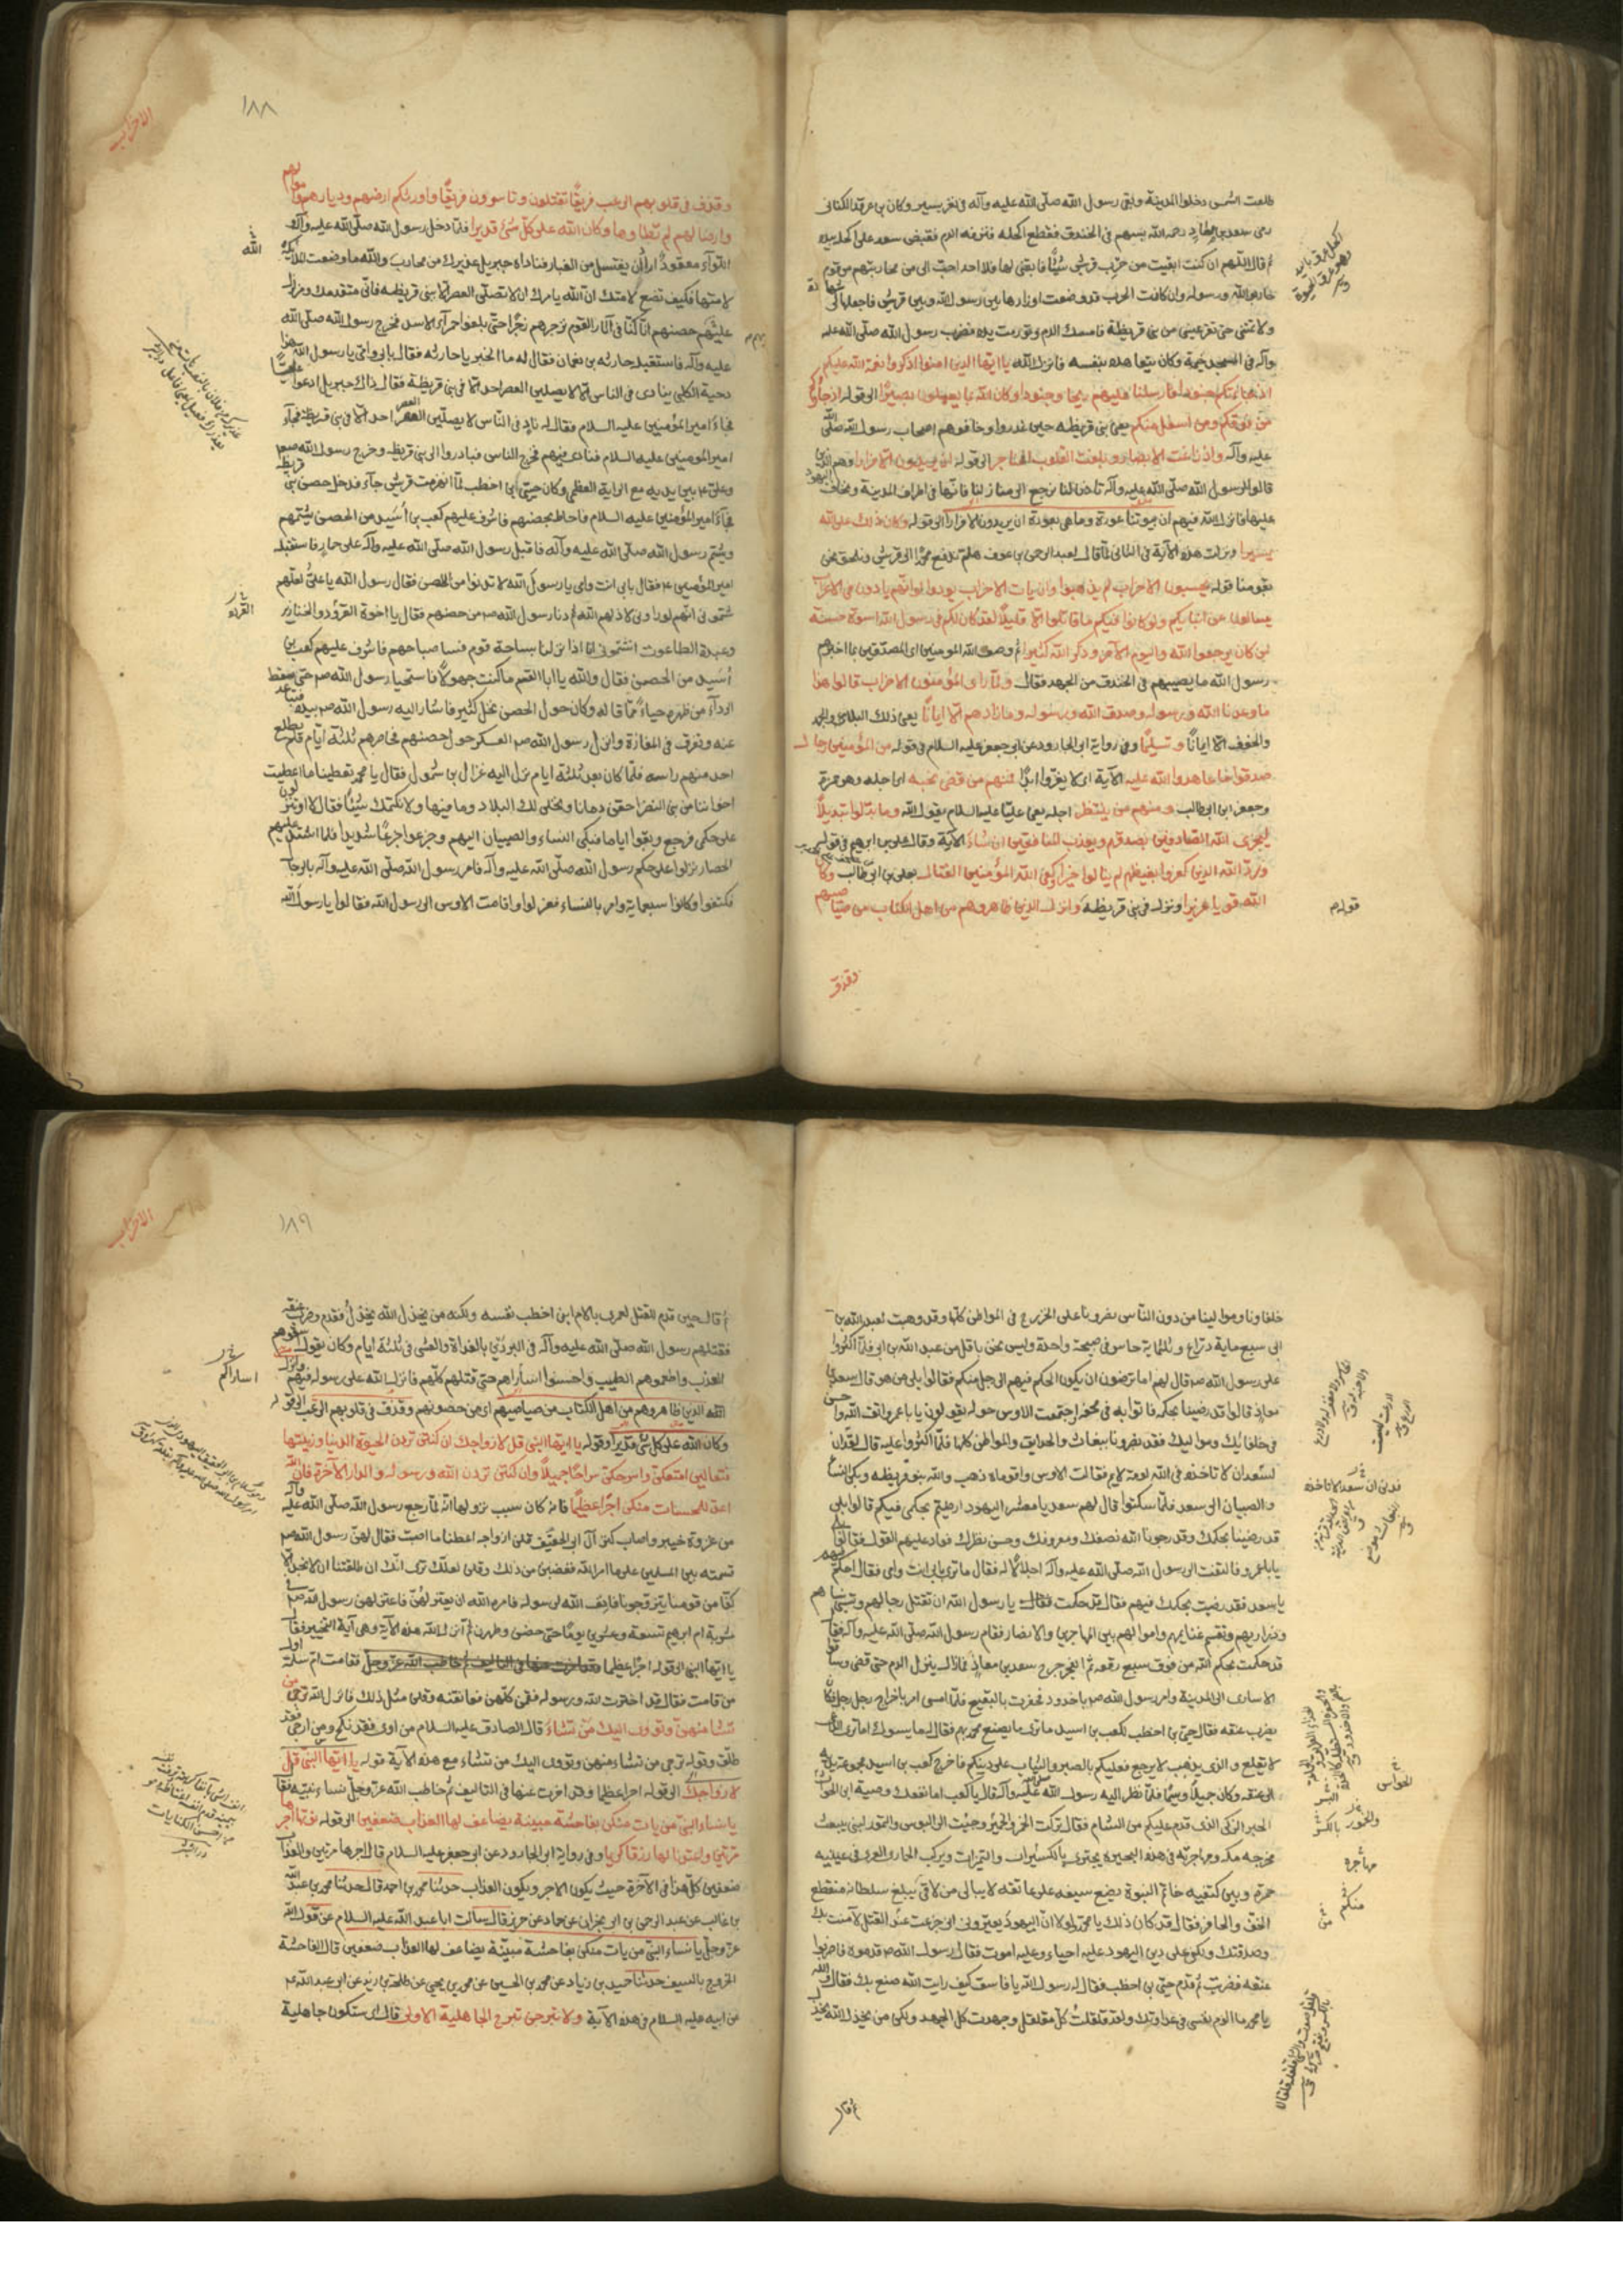 طلعت الشمس دخلوا المدينة وبقى رسول الله صلّى الله عليه وآله فى نفر يسير وكان بن عرقد الكنانى
رمى سعد بن معاذ رحمه الله بسهم فى الخندق فقطع اكحله فنزفه الدم فقبض سعد على اكحله بيده
ثم قال اللّهم ان كنت ابقيت من حرب قريش شيئًا فابقنى لها فلا احد احبّ الى من محاربتهم من قوم
حاربوا الله ورسوله وان كانت الحرب قد وضعت اوزارها بين رسول الله وبين قريش فاجعلها لى
ولا تمتنى حتى تقر عينى من بنى قريظة فامسك الدم وتورمت يده فضرب رسول الله صلى الله عليه
وآله فى المسجد خيمة وكان يتعاهده بنفسه فانزل الله يا ايها الذين امنوا اذكروا نعمة الله عليكم
اذ جاءتكم جنود فارسلنا عليهم ريحا وجنودا وكان الله بما يعملون بصيرًا الى قوله اذ جاؤكم
من فوقكم ومن اسفل منكم يعنى بنى قريظه حين غدروا وخافوهم اصحاب رسول الله صلى الله
عليه وآله واذ زاغت الابصار وبلغت القلوب الحناجر الى قوله ان يريدون الا فرارا وهم الذين
قالوا لرسول الله صلى الله عليه وآله تاذن لنا نرجع الى منازلنا فانها فى اطراف المدينة ونخاف اليهود
عليها فانزل الله فيهم ان بيوتنا عورة وما هى بعورة ان يريدون الا فرارا الى قوله وكان ذلك على الله
يسيرا ونزلت هذه الآية فى الثانى لمّا قال لعبد الرحمن بن عوف هلمّ ندفع محمّدا الى قريش ونلحق نحن
بقومنا قوله يحسبون الاحزاب لم يذهبوا وان يات الاحزاب يودوا لو انهم بادون فى الاعراب
يسالون عن انبائكم ولو كانوا فيكم ما قاتلوا الا قليلًا لقد كان لكم فى رسول الله اسوة حسنة
لمن كان يرجو الله واليوم الآخر وذكر الله كثيرا ثم وصف الله المومنين اى المصدقين بما اخبرهم
رسول الله ما يصيبهم فى الخندق من الجهد فقال ولمّا راى المؤمنون الاحزاب قالوا هذا
ما وعدنا الله ورسوله وصدق الله ورسوله وما زادهم الا ايمانًا يعنى ذلك البلاء والجهد
والخوف الا ايمانًا وتسليمًا وفى رواية ابى الجارود عن ابى جعفر عليه السلام فى قوله من المؤمنين رجال
صدقوا ما عاهدوا الله عليه الآية اى لا يفرّوا ابدًا فمنهم من قضى نحبه اى اجله وهو حمزة
وجعفر ابن ابى طالب ومنهم من ينتظر اجله يعنى عليّا عليه السلام يقول الله وما بدّلوا تبديلًا
ليجزى الله الصادقين بصدقهم ويعذب المنافقين ان شاء الآية وقال على بن ابرهيم فى قوله
وردّ الله الذين كفروا بغيظهم لم ينالوا خيرا وكفى الله المؤمنين القتال بعلى بن ابى طالب وكان
الله قويا عزيزا ونزل فى بنى قريظه وانزل الذين ظاهروهم من اهل الكتاب من صياصيهم
وقذف
قوله
الاحزاب
١٨٨
وقذف فى قلوبهم الرعب فريقًا تقتلون وتاسرون فريقًا واورثكم ارضهم وديارهم واموالهم
وارضا لهم لم تطاوها وكان الله على كل شئ قديرا فلمّا دخل رسول الله صلّى الله عليه وآله
اللوآء معقودٌ اراد ان يغتسل من الغبار فناداه جبريل عذيرك من محارب والله ما وضعت الملائكة
لامتها فكيف تضع لامتك انّ الله يامرك ان لا تصلّى العصر الّا ببنى قريظه فانى متقدمك ومزلزل
عليهم حصنهم انّا كنّا فى آثار القوم نزجرهم زجرًا حتى بلغوا حمرآء الاسد فخرج رسول الله صلى الله
عليه وآله فاستقبله حارثه بن نعمان فقال له ما الخبر يا حارثه فقال بابى وامى يا رسول الله هذا
دحية الكلبى ينادى فى الناس الا لا يصلين العصر احد الا فى بنى قريظة فقال ذاك جبريل ادعوا عليًّا
فجاء امير المؤمنين عليه السلام فقال له نادِ فى الناس لا يصلّين العصر احد الّا فى بنى قريظة فجاء
امير المومنين عليه السلام فنادى فيهم فخرج الناس فبادروا الى بنى قريظه وخرج رسول الله صم
وعلى عم بين يديه مع الراية العظمى وكان حيىّ بن اخطب لمّا انهزمت قريش جآء فدخل حصن بنى قريظه
فجآء امير المؤمنين عليه السلام فاحاط بحصنهم فاشرف عليهم كعب بن أسَيد من الحصن يشتمهم
ويشتم رسول الله صلى الله عليه وآله فاقبل رسول الله صلى الله عليه وآله على حمار فاستقبله
امير المؤمنين عم فقال بابى انت وامى يا رسول الله لا تدنوا من الحصن فقال رسول الله يا علىّ لعلّهم
شتمونى انهم لو راونى لاذلهم الله ثم دنا رسول الله صم من حصنهم فقال يا اخوة القرود والخنازير
وعبدة الطاغوت اتشتمونى انا اذا نزلنا بساحة قوم فسا صباحهم فاشرف عليهم كعب بن
أسَيد من الحصن فقال والله يا ابا القسم ما كنت جهولًا فاستحيا رسول الله صم حتى سقط
الردآء من ظهره حياءً ممّا قاله وكان حول الحصن نخل كثير فاشار اليه رسول الله صم بيده فتباعد
عنه وتفرق فى المفازة وانزل رسول الله صم العسكر حول حصنهم فحاصرهم ثلثة ايام فلم يطلع
احد منهم راسه فلمّا كان بعد ثلثة ايام نزل اليه غزال بن شمول فقال يا محمد تعطينا ما اعطيت
اخواننا من بنى النضر احقن دمانا ونخلى لك البلاد وما فيها ولا نكتمك شيئًا فقال لا او تنزلون
على حكمى فرجع وبقوا اياما فبكى النساء والصبيان اليهم وجزعوا جزعًا شديدا فلما اشتد عليهم
الحصار نزلوا على حكم رسول الله صلى الله عليه وآله فامر رسول الله صلّى الله عليه وآله بالرجال
فكتفوا وكانوا سبعماية وامر بالنساء فعزلوا وقامت الاوس الى رسول الله فقالوا يا رسول الله
الله
القردة
خلفاونا وموالينا من دون الناس نصرونا على الخزرج فى المواطن كلها وقد وهبت لعبد الله بن
ابى سبع ماية درّاع وثلثماية حاسر فى صبيحة واحدة وليس نحن باقل من عبد الله بن ابى فلمّا اكثروا
على رسول الله صم قال لهم اما ترضون ان يكون الحكم فيهم الى رجل منكم فقالوا بلى من هو قال سعد بن
معاذ قالوا قد رضينا بحكمه فاتوا به فى محفه اجتمعت الاوس حوله يقولون يا با عمرو اتق الله واحسن
فى خلفائك ومواليك فقد نصرونا ببغاث والحدايق والمواطن كلها فلمّا اكثروا عليه قال لقد ان
لسعد ان لا تاخذه فى الله لومة لايم فقالت الاوس واقوماه ذهب والله بنو قريظه وبكى النساء
والصبيان الى سعد فلمّا سكتوا قال لهم سعد يا معشر اليهود ارضيتم بحكمى فيكم قالوا بلى
قد رضينا بحكمك وقد رجونا الله نصفك ومعروفك وحسن نظرك فعاد عليهم القول فقالوا بلى
يا با عمرو فالتفت الى رسول الله صلّى الله عليه وآله اجلالًا له فقال ما ترى بابى انت وامى فقال احكم فيهم
يا سعد فقد رضيت بحكمك فيهم فقال قد حكمت يا رسول الله ان تقتل رجالهم وتسبى نساهم
وذراريهم وتقسم غنايمهم واموالهم بين المهاجرين والانصار فقام رسول الله صلى الله عليه وآله فقال
قد حكمت بحكم الله من فوق سبع رقعه ثم انفجر جرح سعد بن معاذ فما زال ينزف الدم حتى قضى وساقوا
الاسارى الى المدينة وامر رسول الله صم باخدود فحفرت بالبقيع فلمّا امسى امر باخراج رجل رجل فكان
يضرب عنقه فقال حيىّ بن اخطب لكعب بن اسيد ما ترى ما يصنع محمد بهم فقال له ما يسوك اما ترى الداعى
لا يقلع والذى يذهب لا يرجع فعليكم بالصبر والثبات على دينكم فاخرج كعب بن اسيد مجموعة يديه
الى عنقه وكان جميلًا وسيمًا فلمّا نظر اليه رسول الله صلى الله عليه وآله قال يا كعب اما نفعك وصية ابن الحواش
الحبر الزكى الذى قدم عليكم من الشام فقال تركت الخمر والخمير وجئت الى البوس والتمور لنبى يبعث
مخرجه مكه ومهاجرته فى هذه البحيرة يجتزى بالكسيرات والتميرات ويركب الحمار العرى فى عينيه
حمرة وبين كتفيه خاتم النبوة يضع سيفه على عاتقه لا يبالى من لاقى يبلغ سلطانه منقطع
الخف والحافر فقال قد كان ذلك يا محمد ولولا انّ اليهود يعيّرونى انى جزعت عند القتل لآمنت بك
وصدقتك ولكنى على دين اليهود عليه احيا وعليه اموت فقال رسول الله صم قدموه فاضربوا
عنقه فضربت ثم قدم حيىّ بن اخطب فقال له رسول الله يا فاسق كيف رايت الله صنع بك فقال والله
يا محمد ما الوم نفسى فى عداوتك ولقد قلقلت كلّ مقلقل وجهدت كل الجهد ولكن من يخذل الله يخذل
ثم قال
فدنى ان سعد الا تاخذه
الحواس
مهاجره
منكم
الاحزاب
١٨٩
ثم قال حين قدم للقتل لعمرى ما لام ابن اخطب نفسه ولكنه من يخذل الله يخذل فقدم وضرب عنقه
فقتلهم رسول الله صلى الله عليه وآله فى البردين بالغداة والعشى فى ثلثة ايام وكان يقول اسقوهم
العذب واطعموهم الطيب واحسنوا اسارهم حتى قتلهم كلّهم فانزل الله على رسوله فيهم وانزل
الله الذين ظاهروهم من اهل الكتاب من صياصيهم اى من حصونهم وقذف فى قلوبهم الرعب الى قوله
وكان الله على كل شئ قديرا وقوله يا ايها النبى قل لازواجك ان كنتن تردن الحيوة الدنيا وزينتها
فتعالين امتعكن واسرحكن سراحًا جميلًا وان كنتن تردن الله ورسوله والدار الآخرة فان الله
اعد للمحسنات منكن اجرًا عظيمًا فانه كان سبب نزولها انّه لمّا رجع رسول الله صلى الله عليه وآله
من غزوة خيبر واصاب كنز آل ابى الحقيق قلن ازواجه اعطنا ما اصبت فقال لهنّ رسول الله صم
قسمته بين المسلمين على ما امر الله فغضبن من ذلك وقلن لعلك ترى انّك ان طلقتنا ان لا نجد الا
كفّا من قومنا يتزوجونا فانف الله لرسوله فامره الله ان يعتزلهنّ فاعتزلهن رسول الله صم فى
مشربة ام ابرهيم تسعة وعشرين يومًا حتى حضن وطهرن ثم انزل الله هذه الآية وهى آية التخيير فقال
يا ايها النبى الى قوله اجرًا عظيما فقامت ام سلمة اول
من قامت فقالت قد اخترت الله ورسوله فقمن كلّهن فعانقنه وقلن مثل ذلك فانزل الله ترجى من
تشا منهن وتووى اليك من تشاءُ قال الصادق عليه السلام من اوى فقد نكح ومن ارجى فقد
طلّق وقوله ترجى من تشاء منهن وتووى اليك من تشاء مع هذه الآية قوله يا ايها النبىّ قل
لازواجك الى قوله اجرا عظيما وقد اخرت عنها فى التاليف ثم خاطب الله عزّ وجلّ نساء نبيّه فقال
يا نساء النبى من يات منكن بفاحشة مبينة يضاعف لها العذاب ضعفين الى قوله نؤتها اجرها
مرّتين واعتدنا لها رزقا كريما وفى رواية ابى الجارود عن ابى جعفر عليه السلام قال اجرها مرتين والعذاب
ضعفين كلّ هذا فى الآخرة حيث يكون الاجر ويكون العذاب حدثنا محمد بن احمد قال حدثنا محمد بن عبد الله
بن غالب عن عبد الرحمن بن ابى نجران عن حماد عن حريز قال سالت ابا عبد الله عليه السلام عن قول الله
عزّ وجلّ يا نساء النبىّ من يات منكن بفاحشة مبينّة يضاعف لها العذاب ضعفين قال الفاحشة
الخروج بالسيف حدثنا حميد بن زياد عن محمد بن الحسين عن محمد بن يحيى عن طلحة بن زيد عن ابى عبد الله عم
عن ابيه عليه السلام فى هذه الآية ولا تبرجن تبرج الجاهلية الاولى قال اى ستكون جاهلية
اساراكم